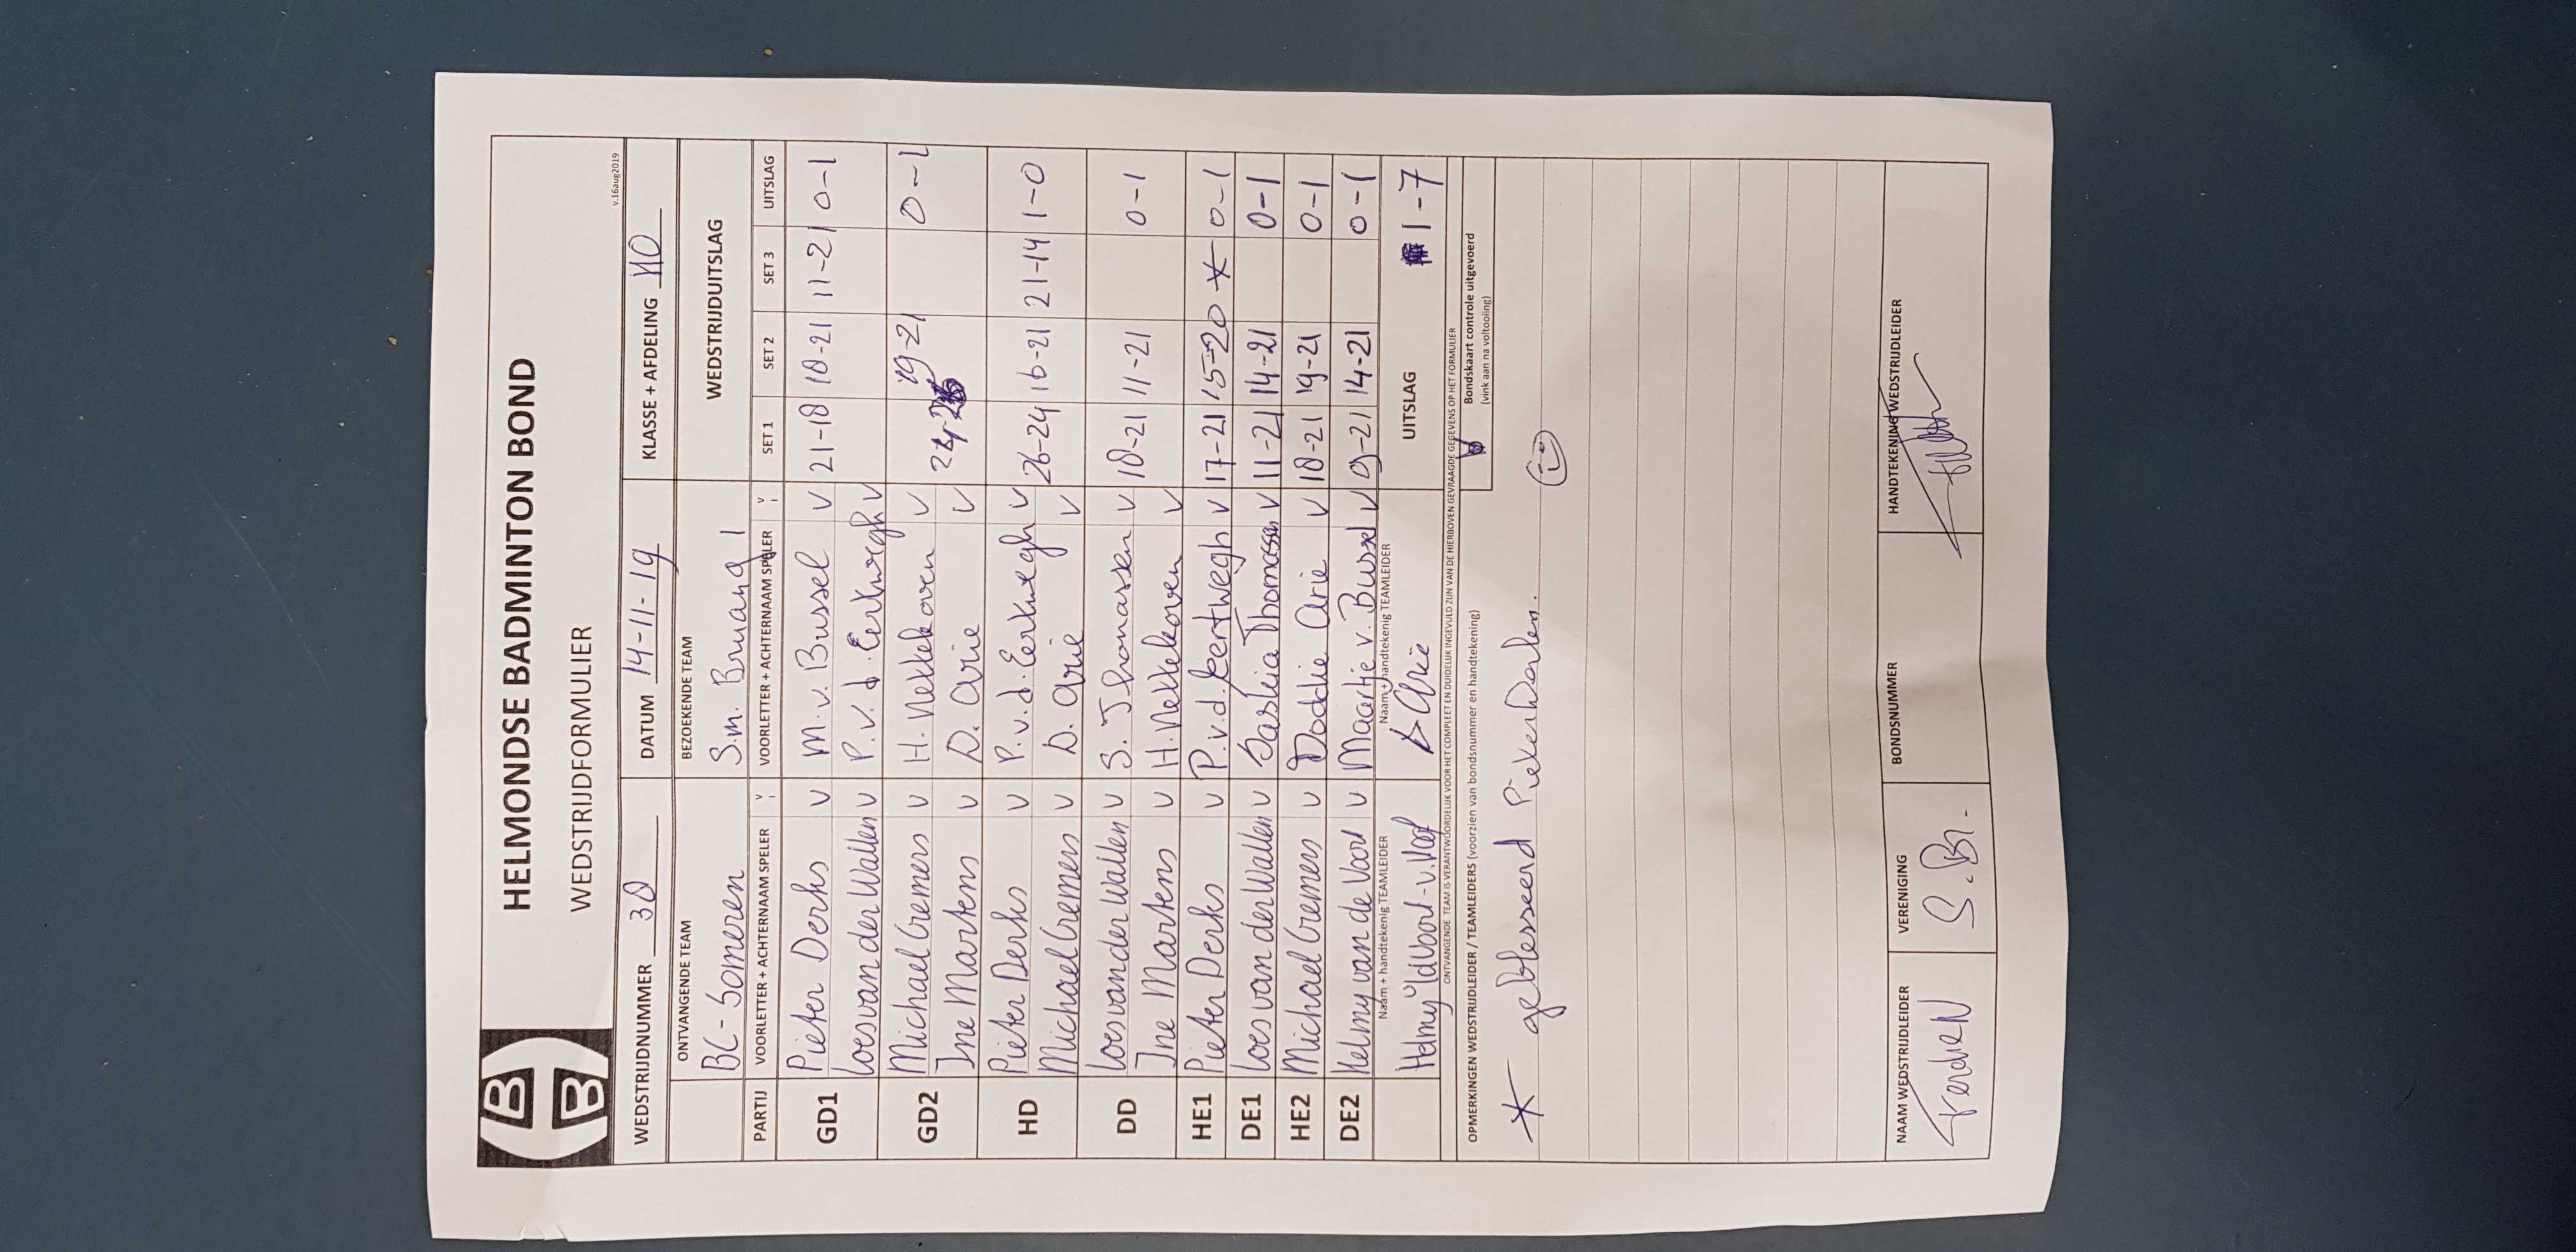 HELMONDSE BADMINTON BOND
WEDSTRIJDFORMULIER
v.16aug2019
WEDSTRIJDNUMMER 38 DATUM 14-11-19 KLASSE + AFDELING
ONTVANGENDE TEAM BEZOEKENDE TEAM WEDSTRIJDUITSLAG
BC-Someren S.m. Bruang 1
PARTIJ VOORLETTER + ACHTERNAAM SPELER V VOORLETTER + ACHTERNAAM SPELER V SET 1 SET 2 SET 3 UITSLAG
GD1 Pieter Derks V M. v. Bussel V 21-18 18-21 11-21 0-1
Loes van der Wallen V P. v. d. V
GD2 Michael Cremers V H. Nekkekoven V 19-21 0-1
Ine Martens V D. Arie V
HD Pieter Derks V P. v. d. V 26-24 16-21 21-14 1-0
Michael Cremers V D. Arie V
DD Loes van der Wallen V S. Thomassen V 18-21 11-21 0-1
Ine Martens V H. Nekkekoven V
HE1 Pieter Derks V P. v. d. V 17-21 15-20 * 0-1
DE1 Loes van der Wallen V Saskia Thomassen V 11-21 14-21 0-1
HE2 Michael Cremers V Arie V 18-21 19-21 0-1
DE2 Helmy van de Voort V Maartje v. Bussel V 9-21 14-21 0-1
Naam + handtekenig TEAMLEIDER Naam + handtekenig TEAMLEIDER UITSLAG 1-7
Helmy D Arie
ONTVANGENDE TEAM IS VERANTWOORDELIJK VOOR HET COMPLEET EN DUIDELIJK INGEVULD ZIJN VAN DE HIERBOVEN GEVRAAGDE GEGEVENS OP HET FORMULIER
OPMERKINGEN WEDSTRIJDLEIDER / TEAMLEIDERS (voorzien van bondsnummer en handtekening)
Bondskaart controle uitgevoerd
(vink aan na voltooiing)
* geblesseerd Pieter Derks.
NAAM WEDSTRIJDLEIDER VERENIGING BONDSNUMMER HANDTEKENING WEDSTRIJDLEIDER
S.Br.